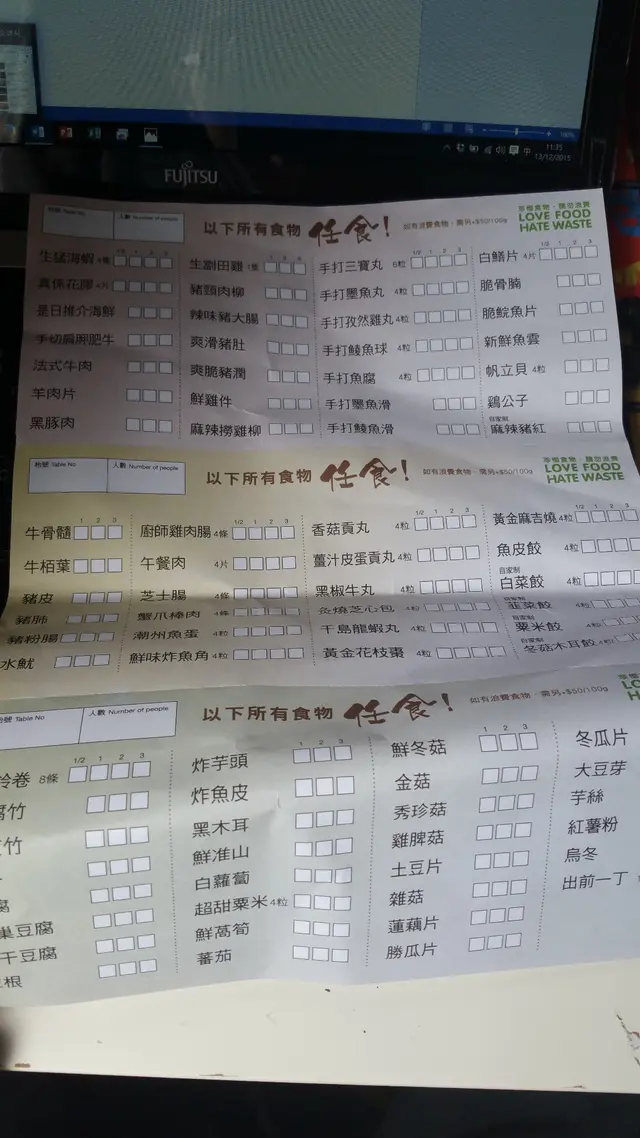 100%
11:35
13/12/2015
FUJITSU
枱號 Table No.
人數 Number of people
以下所有食物 任食!
如有浪費食物,需另+$50/100g
珍惜食物,請勿浪費
LOVE FOOD
HATE WASTE
生猛海蝦 4隻 1/2 1 2 3
真係花膠 4片
是日推介海鮮
手切肩胛肥牛
法式牛肉
羊肉片
黑豚肉
生劏田雞 1隻 1 2 3
豬頸肉柳
辣味豬大腸
爽滑豬肚
爽脆豬潤
鮮雞件
麻辣撈雞柳
手打三寶丸 6粒 1/2 1 2 3
手打墨魚丸 4粒
手打孜然雞丸 4粒
手打鯪魚球 4粒
手打魚腐 4粒
手打墨魚滑
手打鯪魚滑
白鱔片 4片 1/2 1 2 3
脆骨腩
脆鯇魚片
新鮮魚雲
帆立貝 4粒
鷄公子
自家制
麻辣豬紅
枱號 Table No
人數 Number of people
以下所有食物 任食!
如有浪費食物,需另+$50/100g
珍惜食物,請勿浪費
LOVE FOOD
HATE WASTE
牛骨髓 1 2 3
牛栢葉
豬皮
豬肺
豬粉腸
水魷
廚師雞肉腸 4條 1/2 1 2 3
午餐肉 4片
芝士腸 4條
蟹爪棒肉 4條
潮州魚蛋 4粒
鮮味炸魚角 4粒
香菇貢丸 4粒 1/2 1 2 3
薑汁皮蛋貢丸 4粒
黑椒牛丸 4粒
灸燒芝心包 4粒
千島龍蝦丸 4粒
黃金花枝棗 4粒
黃金麻吉燒 4粒 1/2 1 2 3
魚皮餃 4粒
自家制
白菜餃 4粒
自家制
韮菜餃 4粒
自家制
粟米餃 4粒
自家制
冬菇木耳餃 4粒
枱號 Table No
人數 Number of people
以下所有食物 任食!
如有浪費食物,需另+$50/100g
LOVE
HATE
鈴卷 8條 1/2 1 2 3
腐竹
竹
腐
巢豆腐
干豆腐
根
炸芋頭 1 2 3
炸魚皮
黑木耳
鮮准山
白蘿蔔
超甜粟米 4粒
鮮萵筍
蕃茄
鮮冬菇 1 2 3
金菇
秀珍菇
雞脾菇
土豆片
雜菇
蓮藕片
勝瓜片
冬瓜片
大豆芽
芋絲
紅薯粉
烏冬
出前一丁